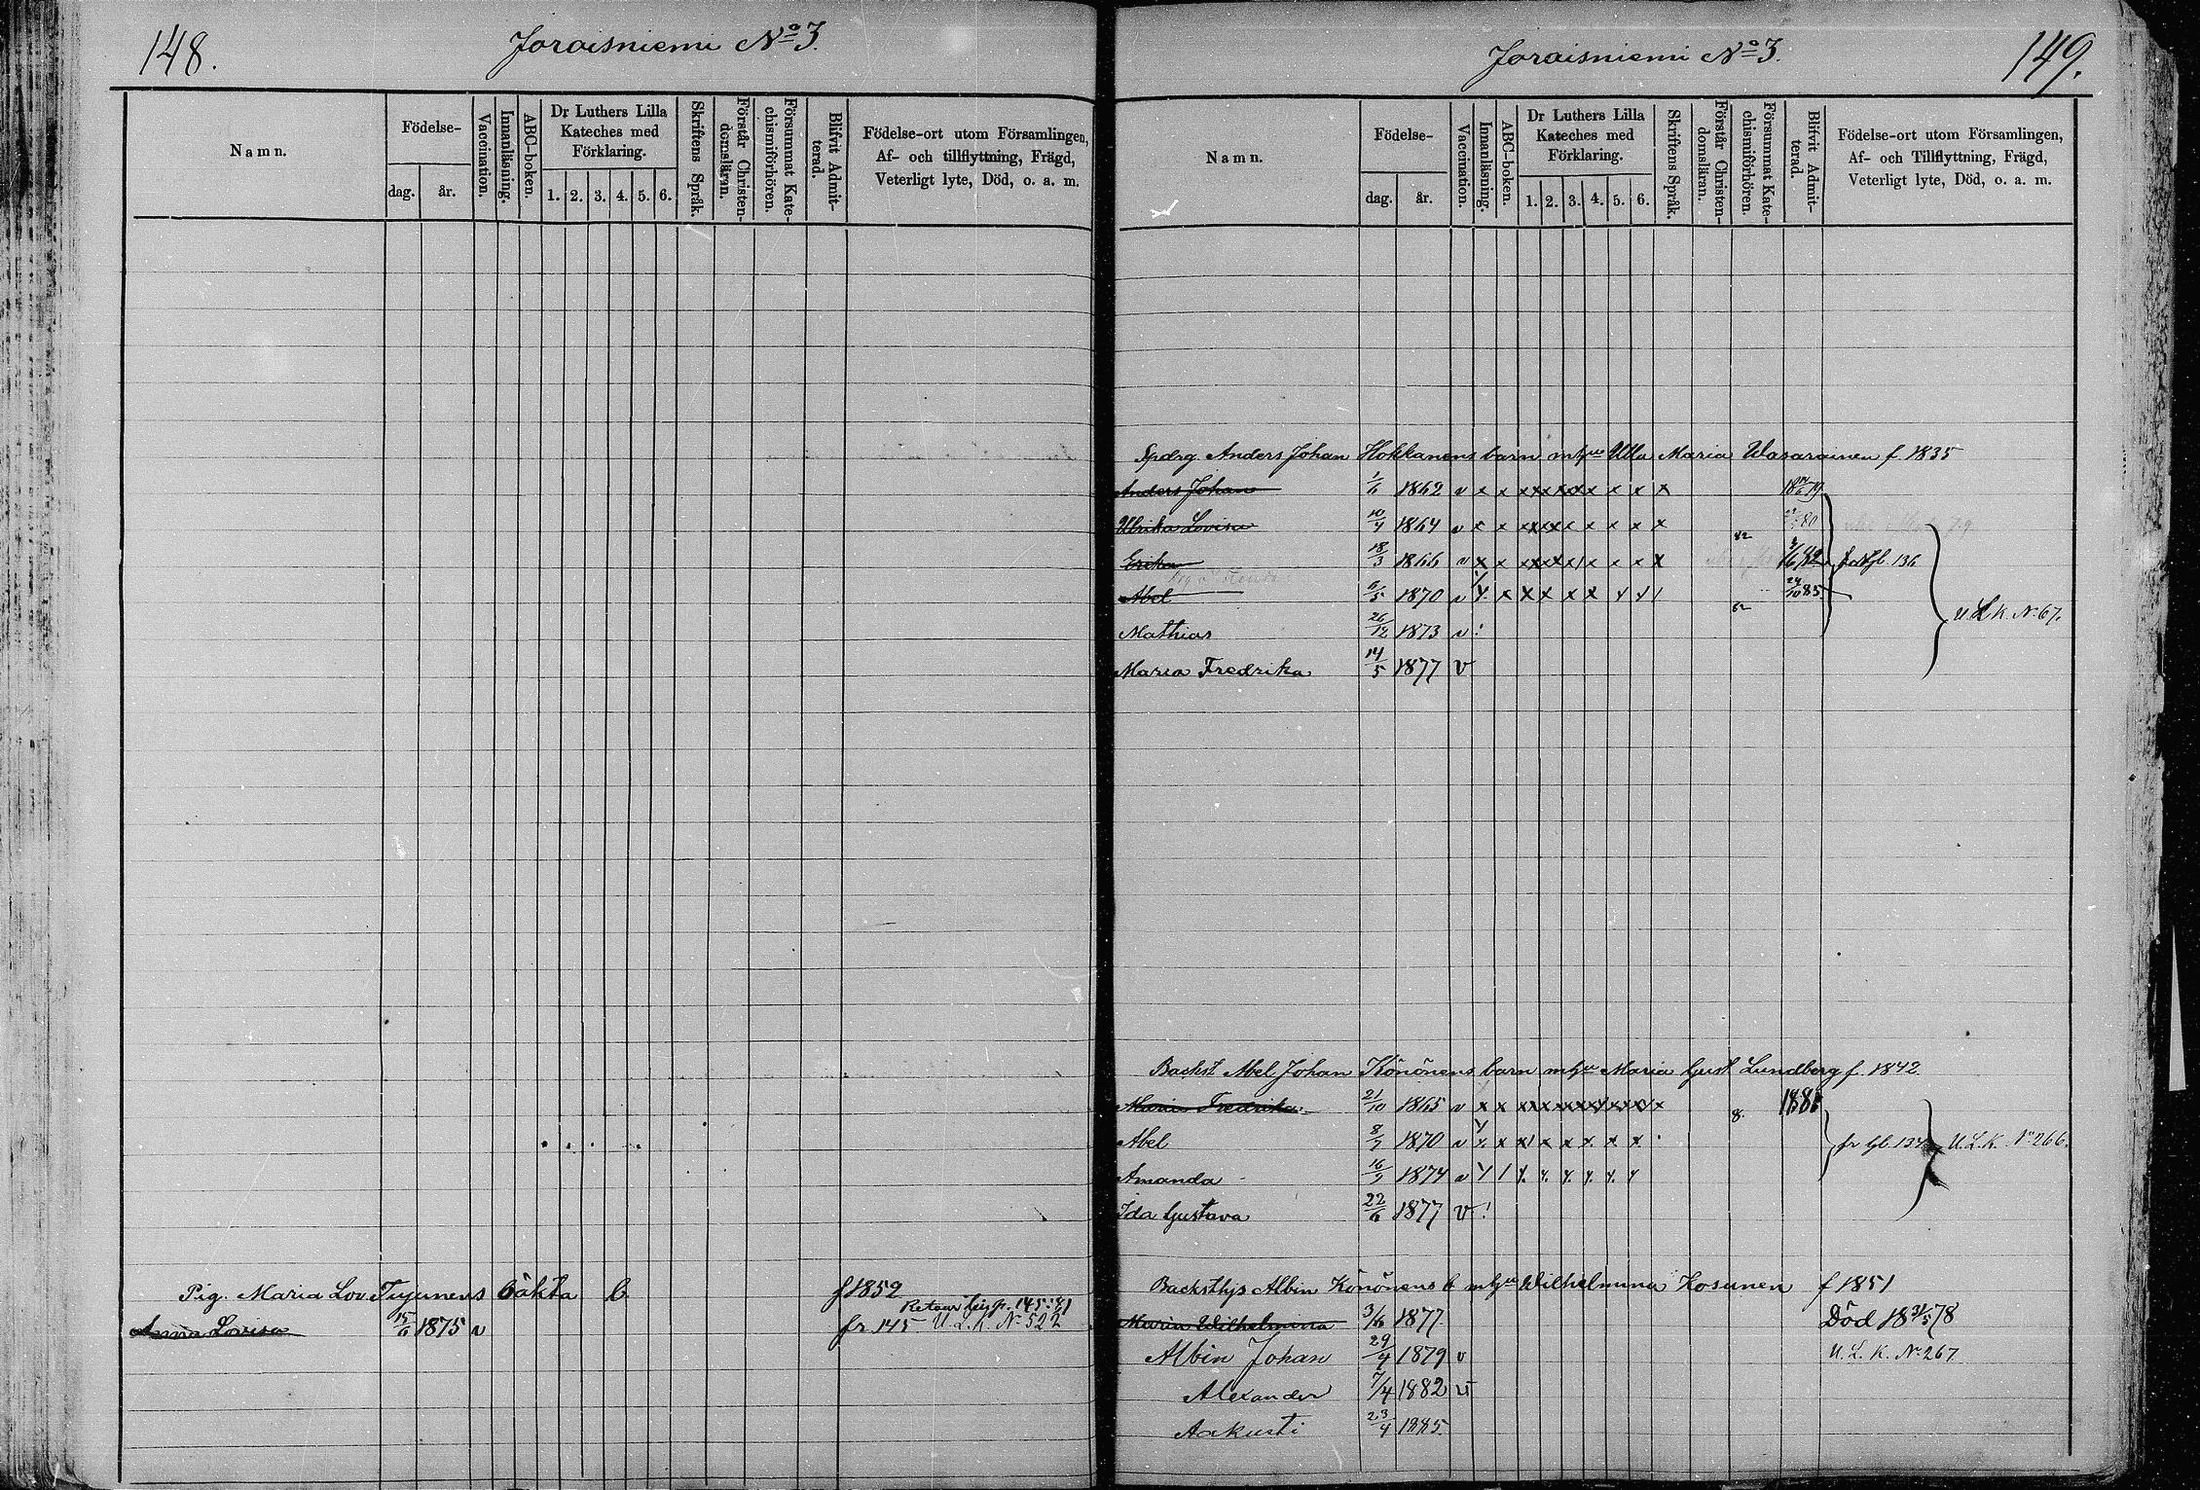 148.
Joroisniemi No 3.
Namn.
Födelse-
dag. år.
Vaccination.
Innanläsning.
ABC-boken.
Dr Luthers Lilla Kateches med Förklaring.
1. 2. 3. 4. 5. 6.
Skriftens Språk.
Förstår Christen-domsläran.
Försummat Kate-chismiförhören.
Blifvit Admit-terad.
Födelse-ort utom Församlingen,
Af- och tillflyttning, Frägd,
Veterligt lyte, Död, o. a. m.
Pig. Maria Lov. b f 1852
Retour 145
Anna Lovisa 15/6 1875 v fr. 145 U. L. K. No 522
149.
Joroisniemi No 3.
Namn.
Födelse-
dag. år.
Vaccination.
Innanläsning.
ABC-boken.
Dr Luthers Lilla Kateches med Förklaring.
1. 2. 3. 4. 5. 6.
Skriftens Språk.
Förstår Christen-domsläran.
Försummat Kate-chismiförhören.
Blifvit Admit-terad.
Födelse-ort utom Församlingen,
Af- och Tillflyttning, Frägd,
Veterligt lyte, Död, o. a. m.
Anders Johan Hokkanens barn m hu Ulla Maria Wasarainen f. 1835
Anders Johan 1/6 1862 v x x x x x x x x x x
Ulrika Lovisa 10/4 1864 v x x x x x x x x x 80
Erika 18/3 1866 v x x x x x x x x x 82 136
Abel 6/5 1870 v x x x x x x 24/10 85
Mathias 26/12 1873 v U. L. K. No 67.
Maria Fredrika 14/5 1877 v
Backst Abel Johan Könönens barn m hu Maria Gust Lundberg f. 1842.
Maria Fredrika 21/10 1865 v x x x x x x x x x x
Abel 8/7 1870 v x x x x x x x fr 134 U. L. K. No 266.
Amanda 16/9 1874 v
Ida Gustava 22/6 1877 v
Albin Könönens b m hu Wilhelmina Kosunen f 1851
Maria Wilhelmina 3/6 1877 Död 18 31/5 78
Albin Johan 29/4 1879 v U. L. K. No 267
Alexander 7/4 1882 v
Aakusti 23/4 1885.